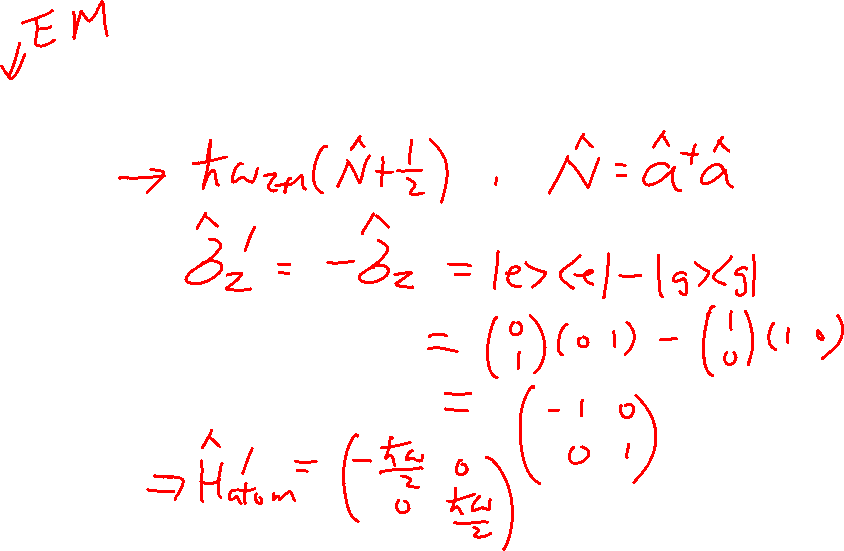 ↙ EM
→ ħω_{z+n}(N̂ + 1/2) . N̂ = â⁺â
σ̂_z' = -σ̂_z = |e><e| - |g><g|
= (0 1)ᵀ(0 1) - (1 0)ᵀ(1 0)
= (-1 0; 0 1)
⇒ Ĥ'_{atom} = (-ħω/2 0; 0 ħω/2)